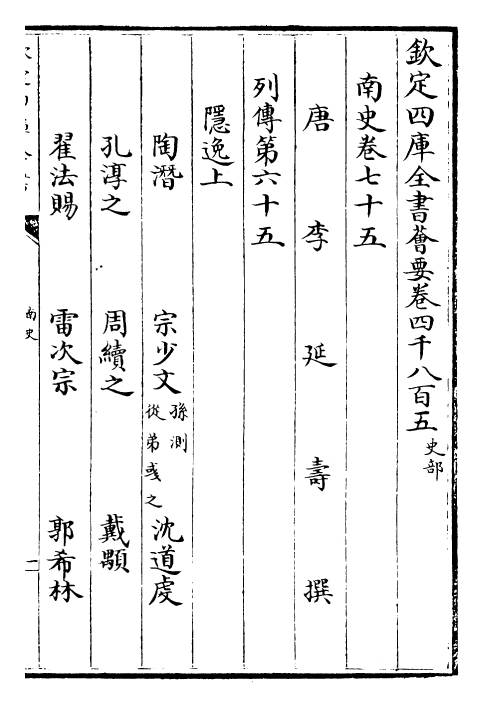 欽定四庫全書薈要卷四千八百五 史部
南史卷七十五
唐 李 延 壽 撰
列傳第六十五
隱逸上
陶潛 宗少文 孫測 從弟彧之 沈道虔
孔淳之 周續之 戴顒
翟法賜 雷次宗 郭希林
南史
一